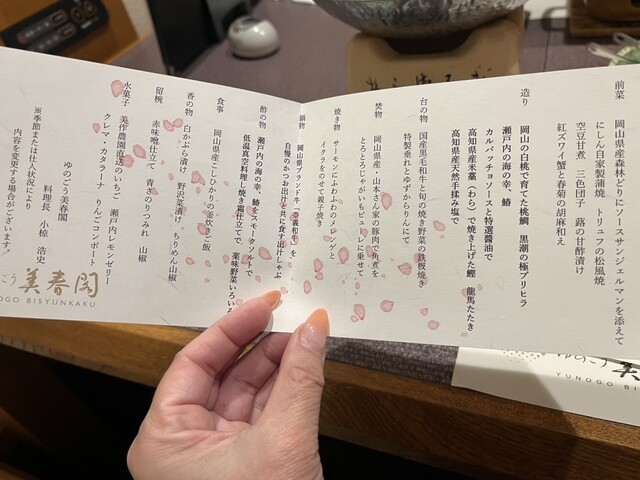 前菜
岡山県産森林どりにソースサンジェルマンを添えて
にしん自家製蒲焼　トリュフの松風焼
空豆甘煮　三色団子　蕗の甘酢漬け
紅ズワイ蟹と春菊の胡麻和え
造り
岡山の白桃で育てた桃鯛　黒潮の極ブリヒラ
瀬戸内の海の幸、鰆
カルパッチョソースと特選醤油で
高知県産米藁（わら）で焼き上げた鰹　龍馬たたき
高知県産天然手揉み塩で
台の物
国産黒毛和牛と旬の焼き野菜の鉄板焼き
特製垂れとゆずからりんにて
焚物
岡山県産・山本さん家の豚肉で角煮を
とろとろじゃがいもピューレに乗せて
焼き物
サーモンにふわふわのメレンゲと
イクラをのせて親子焼き
鍋物
岡山県ブランド牛「奈義和牛」を
自慢のかつお出汁と共に食す出汁しゃぶ
酢の物
瀬戸内の海の幸、鰆をスモークソルトで
低温真空料理し焼き霜仕立てで　薬味野菜いろいろ
食事
岡山県産こしひかりの釜炊きご飯
香の物
白かぶら漬け　野沢菜漬け　ちりめん山椒
留椀
赤味噌仕立て　青さのりつみれ　山椒
水菓子
美作農園直送のいちご　瀬戸内レモンゼリー
クレマ・カタラーナ　りんごコンポート
ゆのごう美春閣
料理長　小椋　浩史
※季節または仕入状況により
内容を変更する場合がございます。
ごう 美春閣
NOGO BISYUNKAKU
YUNOGO BIS